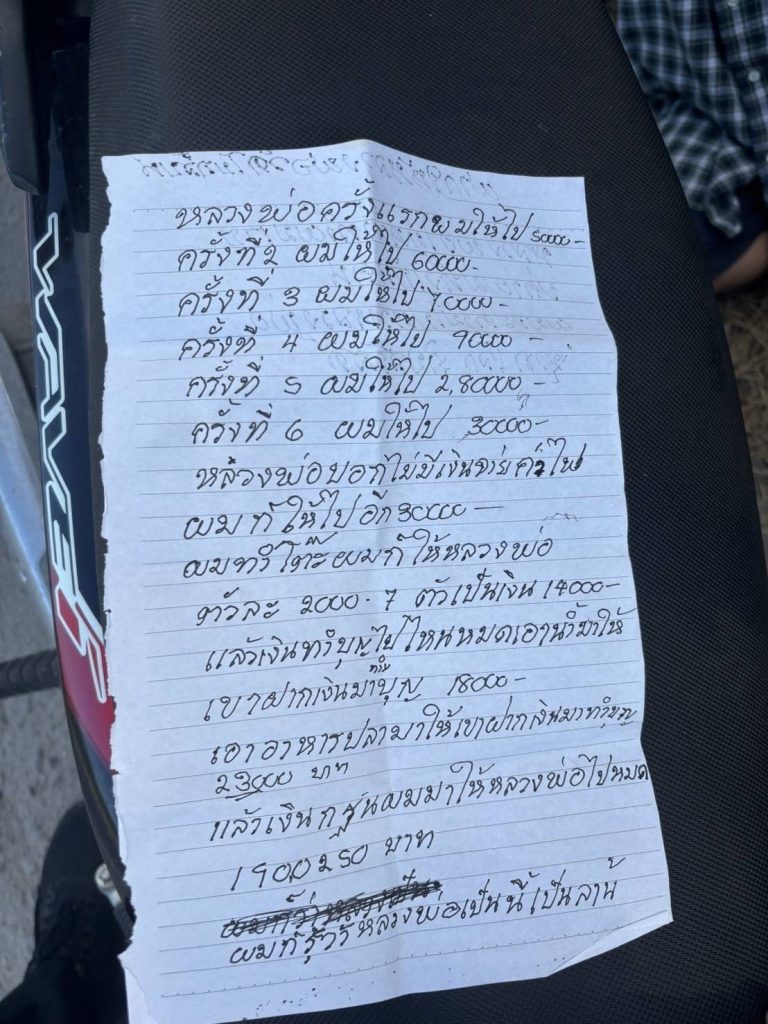 หลวงพ่อครั้งแรกผมให้ไป 50000-
ครั้งที่ 2 ผมให้ไป 60000-
ครั้งที่ 3 ผมให้ไป 70000-
ครั้งที่ 4 ผมให้ไป 90000-
ครั้งที่ 5 ผมให้ไป 2,80000-
ครั้งที่ 6 ผมให้ไป 30000-
หลวงพ่อบอกไม่มีเงินจ่ายค่าไฟ
ผมก็ให้ไปอีก 30000-
ผมทำโต๊ะผมก็ให้หลวงพ่อ
ตัวละ 2000- 7 ตัวเป็นเงิน 14000-
แล้วเงินทำบุญไปไหนหมดเอาน้ำมาให้
เขาฝากเงินมาทำบุญ 18000-
เอาอาหารปลามาให้เขาฝากเงินมาทำบุญ
23000 บาท
แล้วเงินกฐินผมมาให้หลวงพ่อไปหมด
190,0250 บาท
ผมก็รู้ว่าหลวงพ่อเป็นนี้เป็นล้าน
WAVE